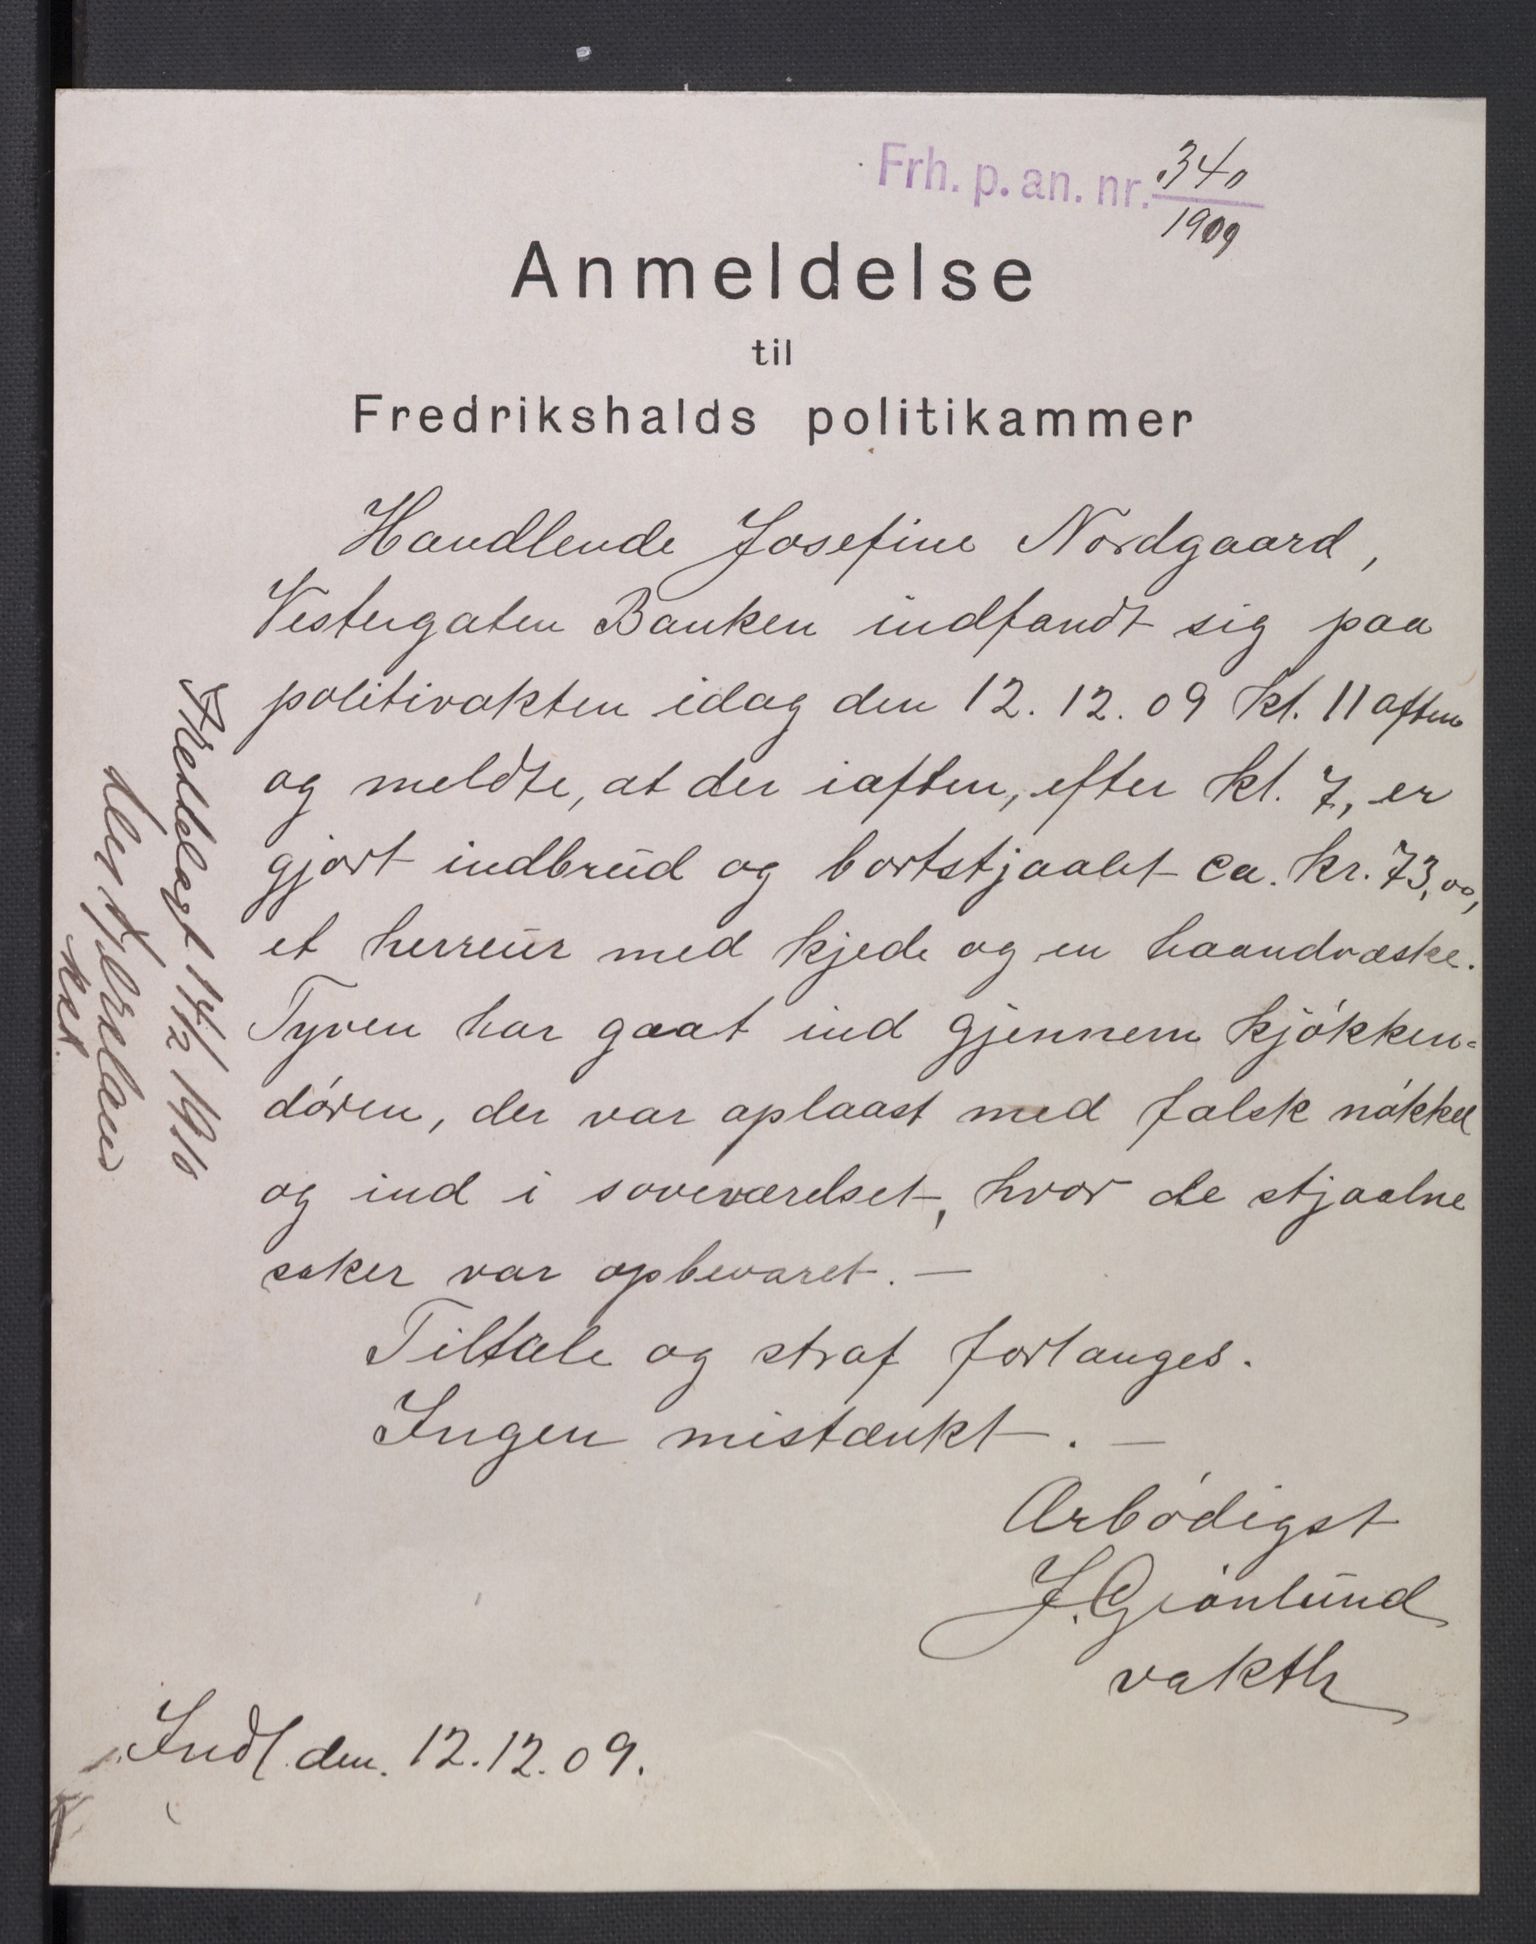 Frh. p. an. nr. 340
1909
Anmeldelse
til
Fredrikshalds politikammer
Handlende Josefine Nordgaard,
Vestergaten Banken indfandt sig paa
politivakten idag den 12.12.09 kl. 11 aften
og meldte, at der iaften, efter kl. 7, er
gjort indbrud og bortstjaalet ca. kr. 73,00,
et herreur med kjede og en haandvæske.
Tyven har gaat ind gjennem kjøkken=
døren, der var oplaast med falsk nøkkel
og ind i soveværelset, hvor de stjaalne
saker var opbevaret. —
Tiltale og straf forlanges.
Ingen mistænkt. —
Ærbødigst
J. Grønlund
vakth
Indl. den. 12.12.09.
Henlagt 14/2 1910